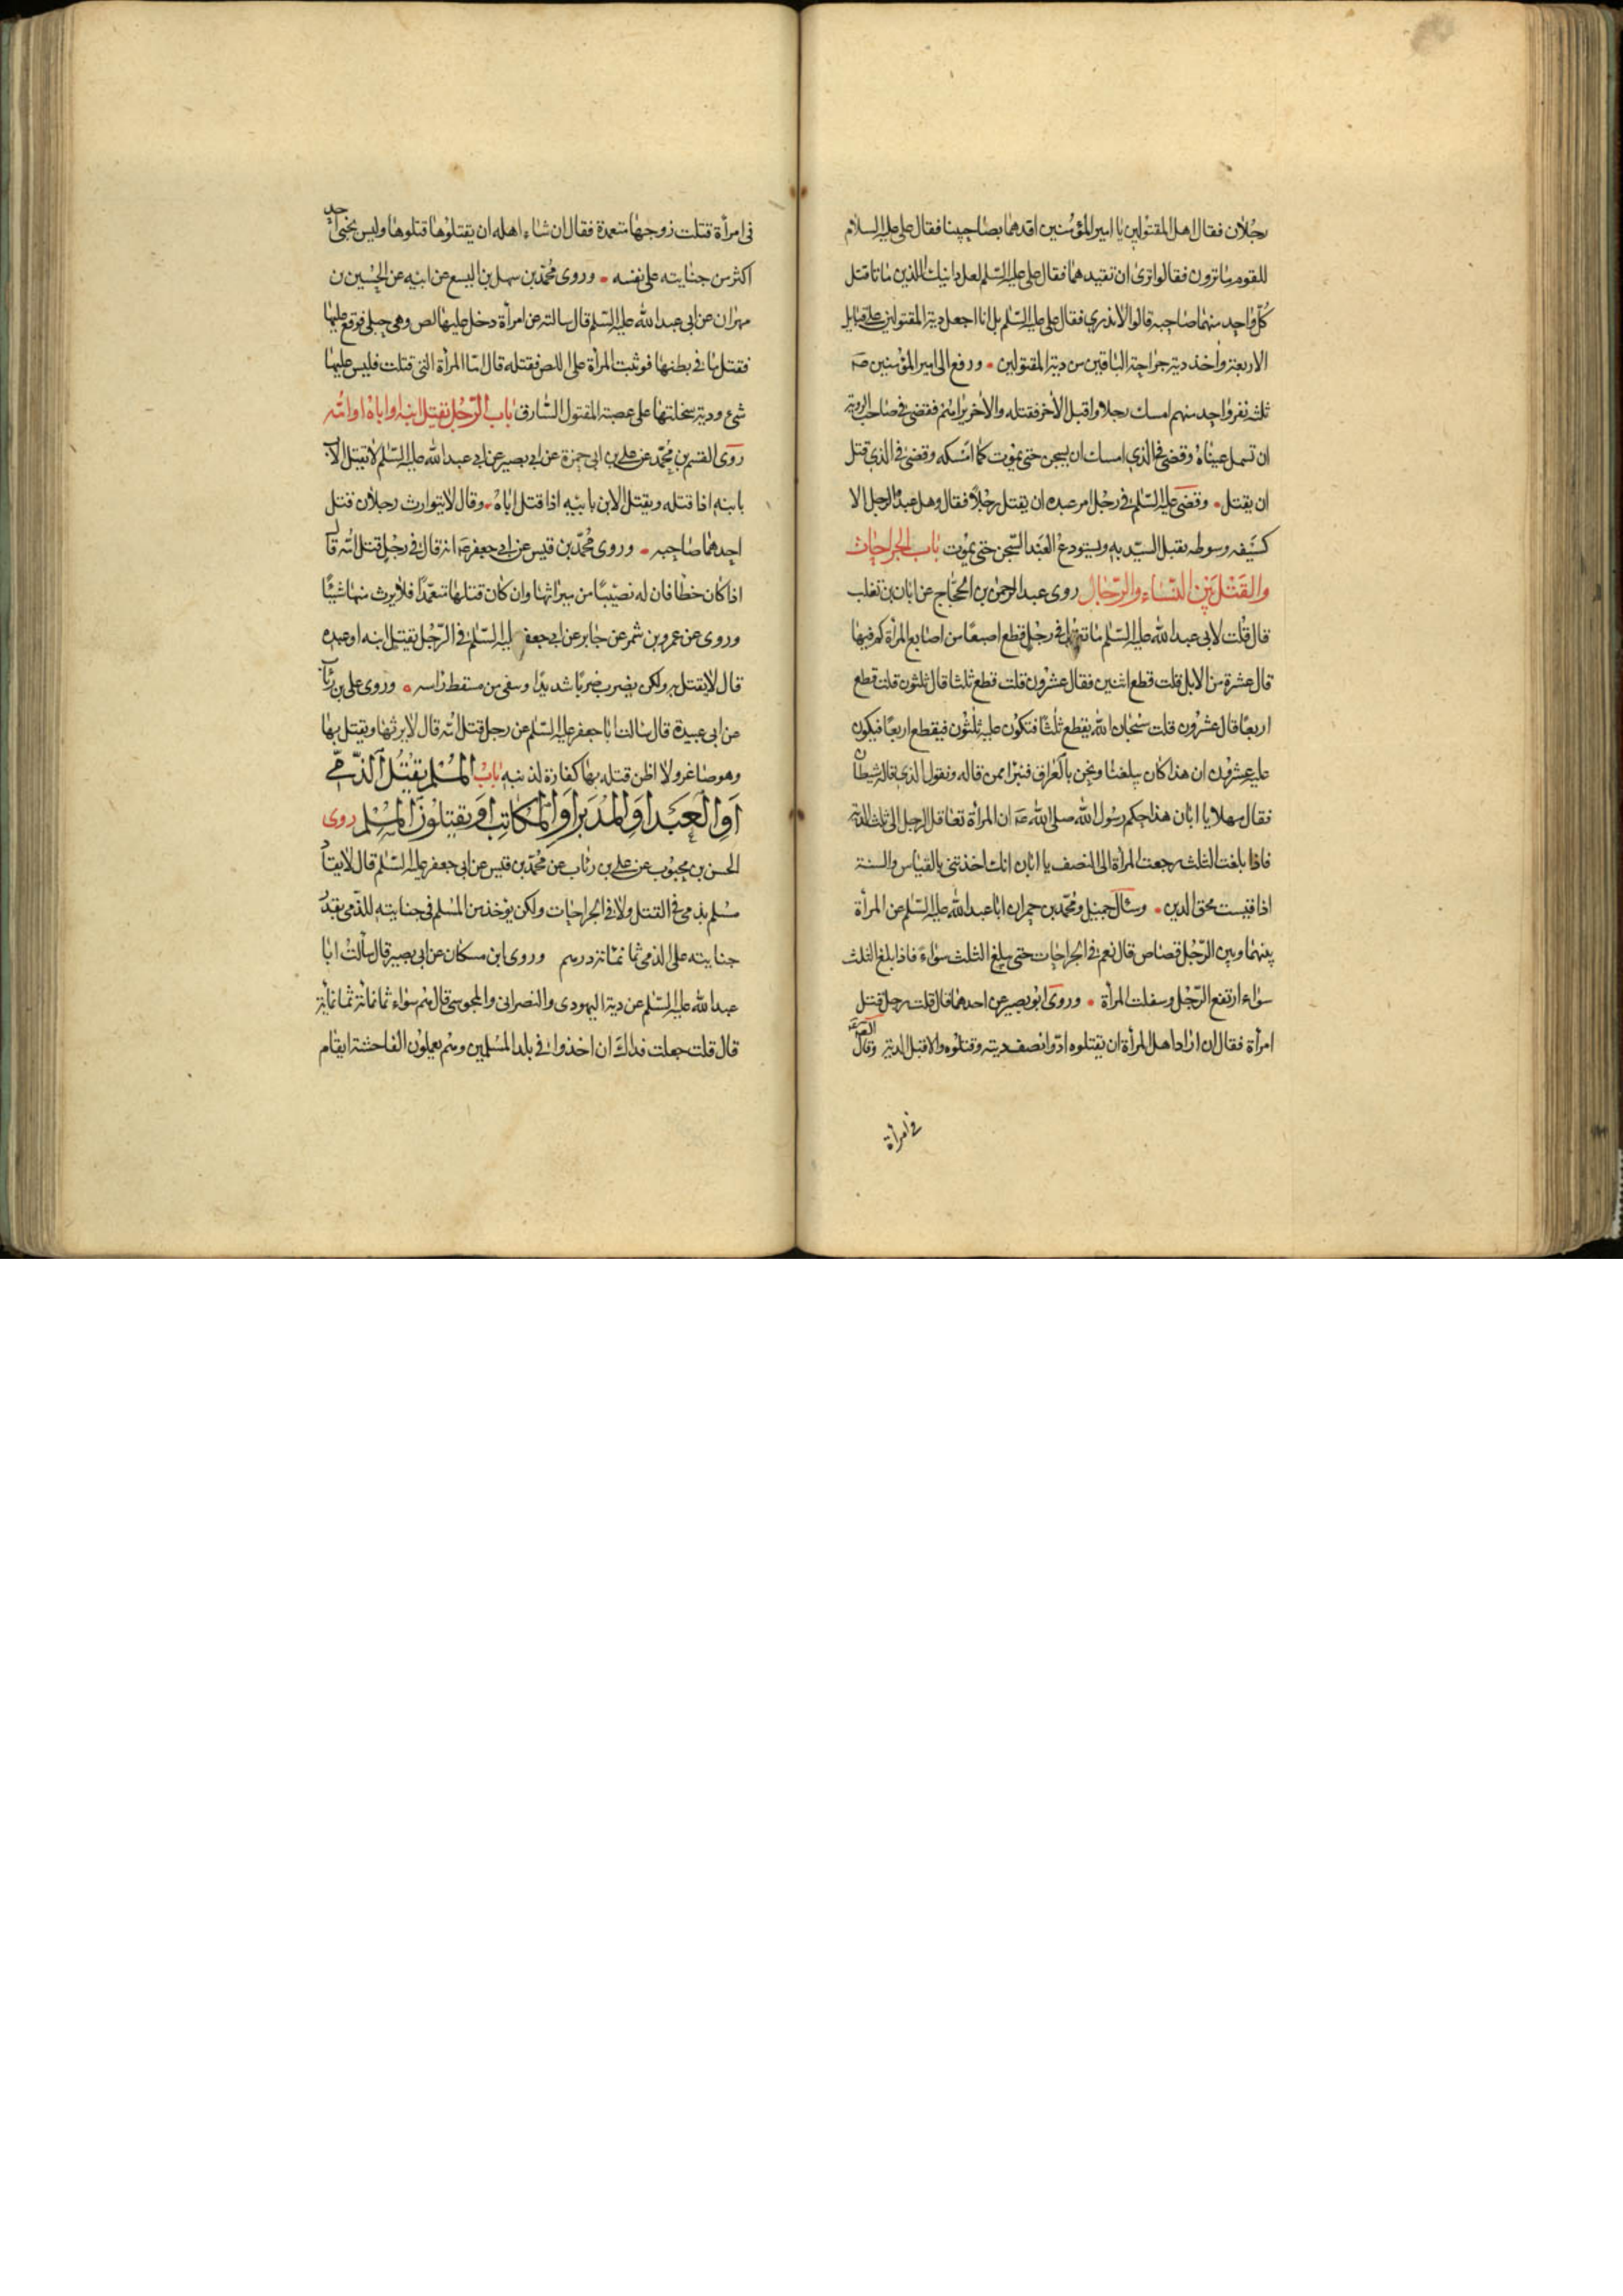 رجلان فقال اهل المقتولين يا امير المؤمنين اقدهما بصاحبينا فقال علي عليه السلام
للقوم ما ترون فقالوا نرى ان تقيدهما فقال علي عليه السلم لعل ذانيك الذين ماتا قتل
كل واحد منهما صاحبه قالوا لا ندري فقال علي عليه السلم بل انا اجعل دية المقتولين على قبايل
الاربعة واخذ دية جراحة الباقين من دية المقتولين ورفع الى امير المؤمنين صه
ثلثه نفر واحد منهم امسك رجلا واقبل الاخر فقتله والاخر يراهم فقضى في صاحب الروية
ان تسمل عيناه وقضى في الذي امسك ان يسجن حتى يموت كما امسكه وقضى في الذي قتل
ان يقتل وقضى عليه السلم في رجل امر عبده ان يقتل رجلا فقال وهل عبد الرجل الا
كسيفه وسوطه يقتل السيد به ويستودع العبد السجن حتى يموت باب الجراحات
والقتل بين النساء والرجال روى عبد الرحمن بن الحجاج عن ابان بن تغلب
قال قلت لابي عبد الله عليه السلم ما تقول في رجل قطع اصبعا من اصابع المراة كم فيها
قال عشرة من الابل قلت قطع اثنين فقال عشرون قلت قطع ثلثا قال ثلثون قلت قطع
اربعا قال عشرون قلت سبحان الله يقطع ثلثا فتكون عليه ثلثون فيقطع اربعا فيكون
عليه عشرون ان هذا كان يبلغنا ونحن بالعراق فنبرا ممن قاله ونقول الذي قاله شيطان
فقال مهلا يا ابان هذا حكم رسول الله صلى الله عه ان المراة تعاقل الرجل الى ثلث الدية
فاذا بلغت الثلث رجعت المراة الى النصف يا ابان انك اخذتني بالقياس والسنة
اذا قيست محق الدين وسال جميل ومحمد بن حمران ابا عبد الله عليه السلم عن المرأة
بينها وبين الرجل قصاص قال نعم في الجراحات حتى يبلغ الثلث سواء فاذا بلغ الثلث
سواء ارتفع الرجل وسفلت المرأة وروى ابو بصير عن احدهما قال قلت رجل قتل
امرأة فقال ان اراد اهل المرأة ان يقتلوه ادوا نصف ديته وقتلوه والا قبل الدية وقال
في امرأة
في امرأة قتلت زوجها متعمدة فقال ان شاء اهله ان يقتلوها قتلوها وليس يجني احد
اكثر من جنايته على نفسه وروى محمد بن سهل بن اليسع عن ابيه عن الحسين بن
مهران عن ابي عبد الله عليه السلم قال سالته عن امرأة دخل عليها لص وهي حبلى فوقع عليها
فقتل ما في بطنها فوثبت المرأة على اللص فقتلته قال اما المرأة التي قتلت فليس عليها
شيء ودية سخلتها على عصبة المقتول السارق باب الرجل يقتل ابنه او اباه او امه
روى القسم بن محمد عن علي بن ابي حمزة عن ابي بصير عن ابي عبد الله عليه السلم لا يقتل الاب
بابنه اذا قتله ويقتل الابن بابيه اذا قتل اباه وقال لا يتوارث رجلان قتل
احدهما صاحبه وروى محمد بن قيس عن ابي جعفر عه انه قال في رجل قتل امه قال
اذا كان خطا فان له نصيبا من ميراثها وان كان قتلها متعمدا فلا يرث منها شيئا
وروى عن عمرو بن شمر عن جابر عن ابي جعفر عليه السلم في الرجل يقتل ابنه او عبده
قال لا يقتل به ولكن يضرب ضربا شديدا وينفى من مسقط راسه وروى علي بن رئاب
عن ابي عبيدة قال سالت ابا جعفر عليه السلم عن رجل قتل امه قال لا يرثها ويقتل بها
وهو صاغر ولا اظن قتله بها كفارة لذنبه باب المسلم يقتل الذمي
او العبد او المدبر او المكاتب او يقتلون المسلم روى
الحسن بن محبوب عن علي بن رئاب عن محمد بن قيس عن ابي جعفر عليه السلم قال لا يقاد
مسلم بذمي في القتل ولا في الجراحات ولكن يوخذ من المسلم في جنايته للذمي بقدر
جنايته على الذمي ثمانمائة درهم وروى ابن مسكان عن ابي بصير قال سالت ابا
عبد الله عليه السلم عن دية اليهودي والنصراني والمجوسي قال هم سواء ثمانمائة ثمانمائة
قال قلت جعلت فداك ان اخذوا في بلد المسلمين وهم يعملون الفاحشة ايقام